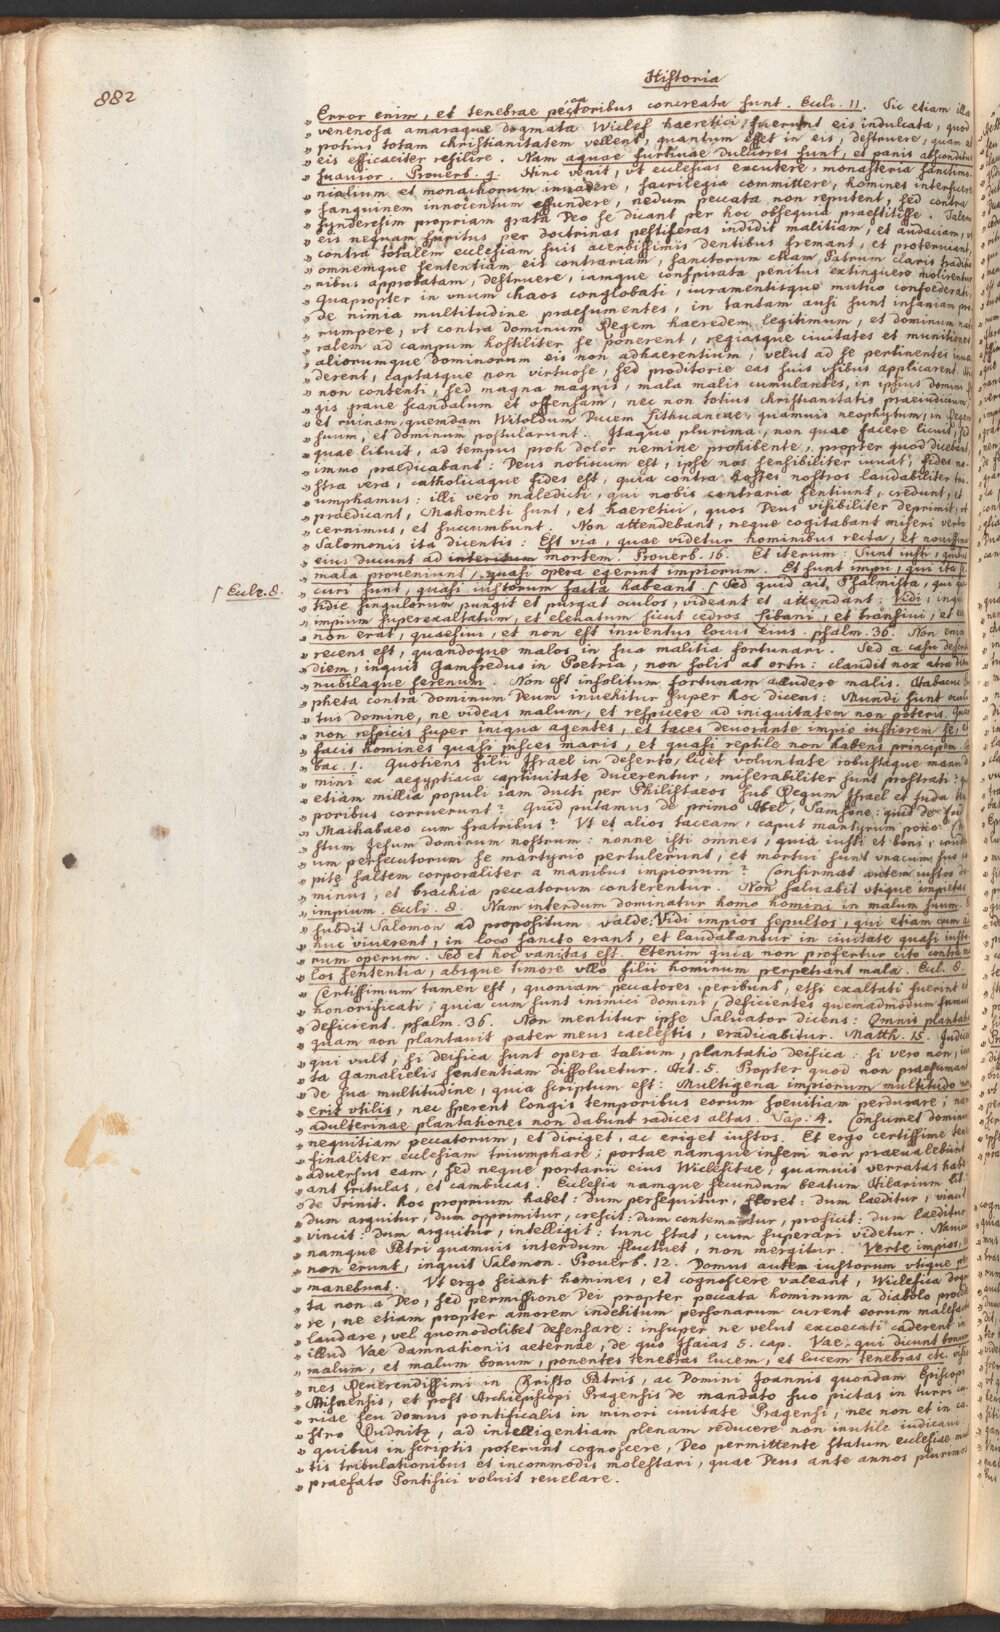 882
Historia
„ Error enim, et tenebrae peccatoribus concreata sunt. Eccli. 11. Sic etiam illa
„ venenosa amaraque dogmata Wiclef haeretici fuerunt eis indulcata, quod
„ potius totam christianitatem vellent, quantum esset in eis, destruere, quam ab
„ eis efficaciter resilire. Nam aquae furtivae dulciores sunt, et panis absconditus
„ suavior. Proverb. 9. Hinc venit, ut ecclesias excutere, monasteria sanctimo-
„ nialium et monachorum invadere, sacrilegia committere, homines interficere
„ sanguinem innocentum effundere, nedum peccata non reputent, sed contra
„ synderesim propriam grata Deo se dicant per hoc obsequia praestitisse. Talem
„ eis nequam spiritus per doctrinas pestiferas indidit malitiam, et audaciam,
„ contra totalem ecclesiam suis acerbissimis dentibus fremant, et proterviant,
„ omnemque sententiam eis contrariam, sanctorum etiam Patrum claris traditio
„ nibus approbatam, destruere, iamque conspirata penitus extinguere molirentur
„ Quapropter in vnum chaos conglobati, iuramentisque mutuo confoederati,
„ de nimia multitudine praesumentes, in tantam ausi sunt insaniam pro
„ rumpere, vt contra dominum Regem haeredem legitimum, et dominum natu
„ ralem ad campum hostiliter se ponerent, regiasque civitates et munitiones
„ aliorumque dominorum eis non adhaerentium, velut ad se pertinentes inva
„ derent, captasque non virtuose, sed proditorie eas suis vsibus applicarent.
„ non contenti, sed magna magnis, mala malis cumulantes, in ipsius domini Re
„ gis grave scandalum et offensam, nec non totius christianitatis praeiudicium,
„ et ruinam, quemdam Witoldum Ducem Lithuaniae, quamuis neophytum, in Regem
„ suum, et dominum postularunt. Itaque plurima, non quae facere licuit, sed
„ quae libuit, ad tempus proh dolor nemine prohibente, propter quod dicebant,
„ immo praedicabant: Deus nobiscum est, ipse nos sensibiliter iuuat, fides no-
„ stra vera, catholicaque fides est, quia contra hostes nostros laudabiliter tri-
„ umphamus: illi vero maledicti, qui nobis contraria sentiunt, credunt, et
„ praedicant, Mahometi sunt, et haeretici, quos Deus visibiliter deprimit, et
„ cernimus, et succumbunt. Non attendebant, neque cogitabant miseri verba
„ Salomonis ita dicentis: Est via, quae videtur hominibus recta, et novissima
„ eius ducunt ad interitum mortem. Proverb. 16. Et iterum: Sunt iusti, quibus
„ mala proveniunt, quasi opera egerint impiorum. Et sunt impii, qui ita se-
ſ Eccle. 8.
„ curi sunt, quasi iustorum facta habeant. ſ Sed quid ait Psalmista, qui quo
„ tidie singulorum pungit et purgat oculos, videant et attendant: Vidi, inquit
„ impium superexaltatum, et elevatum sicut cedros Libani, et transivi, et ecce
„ non erat, quaesivi, et non est inventus locus eius. psalm. 36. Non enim
„ recens est, quandoque malos in sua malitia fortunari. Sed a casu describe
„ diem, inquit Gamfredus in Poetria, non solis ab ortu: claudit nox atra diem
„ nubilaque serenum. Non est insolitum fortunam alludere malis. Habacuc Pro
„ pheta contra dominum Deum invehitur super hoc dicens: Mundi sunt oculi
„ tui domine, ne videas malum, et respicere ad iniquitatem non poteris. Quare
„ non respicis super iniqua agentes, et taces devorante impio iustiorem se, et
„ facis homines quasi pisces maris, et quasi reptile non habens principem. Ha
„ bac. 1. Quotiens filii Israel in deserto, licet voluntate robustaque manu do
„ mini ex aegyptiaca captivitate ducerentur, miserabiliter sunt prostrati?
„ etiam millia populi iam ducti per Philistaeos sub Regum Israel et Juda tem
„ poribus corruerunt? Quid putamus de primo Abel, Samsone: quid de Juda
„ Machabaeo cum fratribus? Vt et alios taceam, caput martyrum pono Chri
„ stum Jesum dominum nostrum: nonne isti omnes, quia iusti et boni, crude
„ um persecutorum se martyrio pertulerunt, et mortui sunt vnacum suo ca
„ pite saltem corporaliter a manibus impiorum? Confirmat autem iustos do
„ minus, et brachia peccatorum conterentur. Non salvabit vtique impietas
„ impium. Eccli. 8. Nam interdum dominatur homo homini in malum suum.
„ subdit Salomon ad propositum valde: Vidi impios sepultos, qui etiam cum ad
„ huc viverent, in loco sancto erant, et laudabantur in civitate quasi iusto
„ rum operum. Sed et hoc vanitas est. Etenim quia non profertur cito contra ma
„ los sententia, absque timore vllo filii hominum perpetrant mala. Eccl. 8.
„ Certissimum tamen est, quoniam peccatores peribunt, etsi exaltati fuerint et
„ honorificati; quia cum sunt inimici domini, deficientes quemadmodum fumus
„ deficient. psalm. 36. Non mentitur ipse Salvator dicens: Omnis plantatio
„ quam non plantavit pater meus caelestis, eradicabitur. Matth. 15. Judicet
„ qui vult, si deifica sunt opera talium, plantatio deifica: si vero non, iux
„ ta Gamalielis sententiam dissolvetur. Act. 5. Propter quod non praesumant
„ de sua multitudine, quia scriptum est: Multigena impiorum multitudo non
„ erit vtilis, nec sperent longis temporibus eorum soevitiam perdurare; nam
„ adulterinae plantationes non dabunt radices altas. Sap. 4. Consumet dominus
„ nequitiam peccatorum, et diriget, ac eriget iustos. Et ergo certissime tene
„ finaliter ecclesiam triumphare; portae namque inferni non praevalebunt
„ adversus eam, sed neque portarii eius Wiclefitae, quamuis verratas habe
„ ant fritulas, et cambucas. Ecclesia namque secundum beatum Hilarium lib.
„ de Trinit. hoc proprium habet: dum persequitur, floret: dum laeditur, vincit
„ dum arguitur, dum opprimitur, crescit: dum contemnitur, proficit: dum laeditur
„ vincit: dum arguitur, intelligit: tunc stat, cum superari videtur. Navicu
„ namque Petri quamuis interdum fluctuet, non mergitur. Verte impios, et
„ non erunt, inquit Salomon. Proverb. 12. Domus autem iustorum vtique per
„ manebunt. Vt ergo sciant homines, et cognoscere valeant, Wiclefica dogma
„ ta non a Deo, sed permissione Dei propter peccata hominum a diabolo procede
„ re, ne etiam propter amorem indebitum personarum curent eorum malefacta
„ laudare, vel quomodolibet defensare: insuper ne velut excoecati caderent in
„ illud Vae damnationis aeternae, de quo Isaias 5. cap. Vae, qui dicunt bonum
„ malum, et malum bonum, ponentes tenebras lucem, et lucem tenebras etc. visio
„ nes Reverendissimi in Christo Patris, ac Domini Joannis quondam Episcopi
„ Misnensis, et post Archiepiscopi Pragensis de mandato suo pictas in turri cu
„ riae seu domus pontificalis in minori civitate Pragensi, nec non et in ca
„ stro Rudnitz, ad intelligentiam plenam reducere non inutile iudicavi
„ quibus inscriptis poterunt cognoscere, Deo permittente statum ecclesiae mul
„ tis tribulationibus et incommodis molestari, quae Deus ante annos plurimos
„ praefato Pontifici voluit revelare.